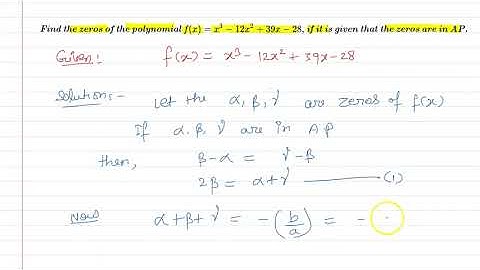 Find the zeros of the polynomial f(x) = x³ − 12x² + 39x − 28, if it is given that the zeros are in AP.
Given:- f(x) = x³ − 12x² + 39x − 28
Solution:- Let the α, β, γ are zeros of f(x)
If α, β, γ are in AP
then, β − α = γ − β
2β = α + γ ——— (1)
Now α + β + γ = −(b/a) = −